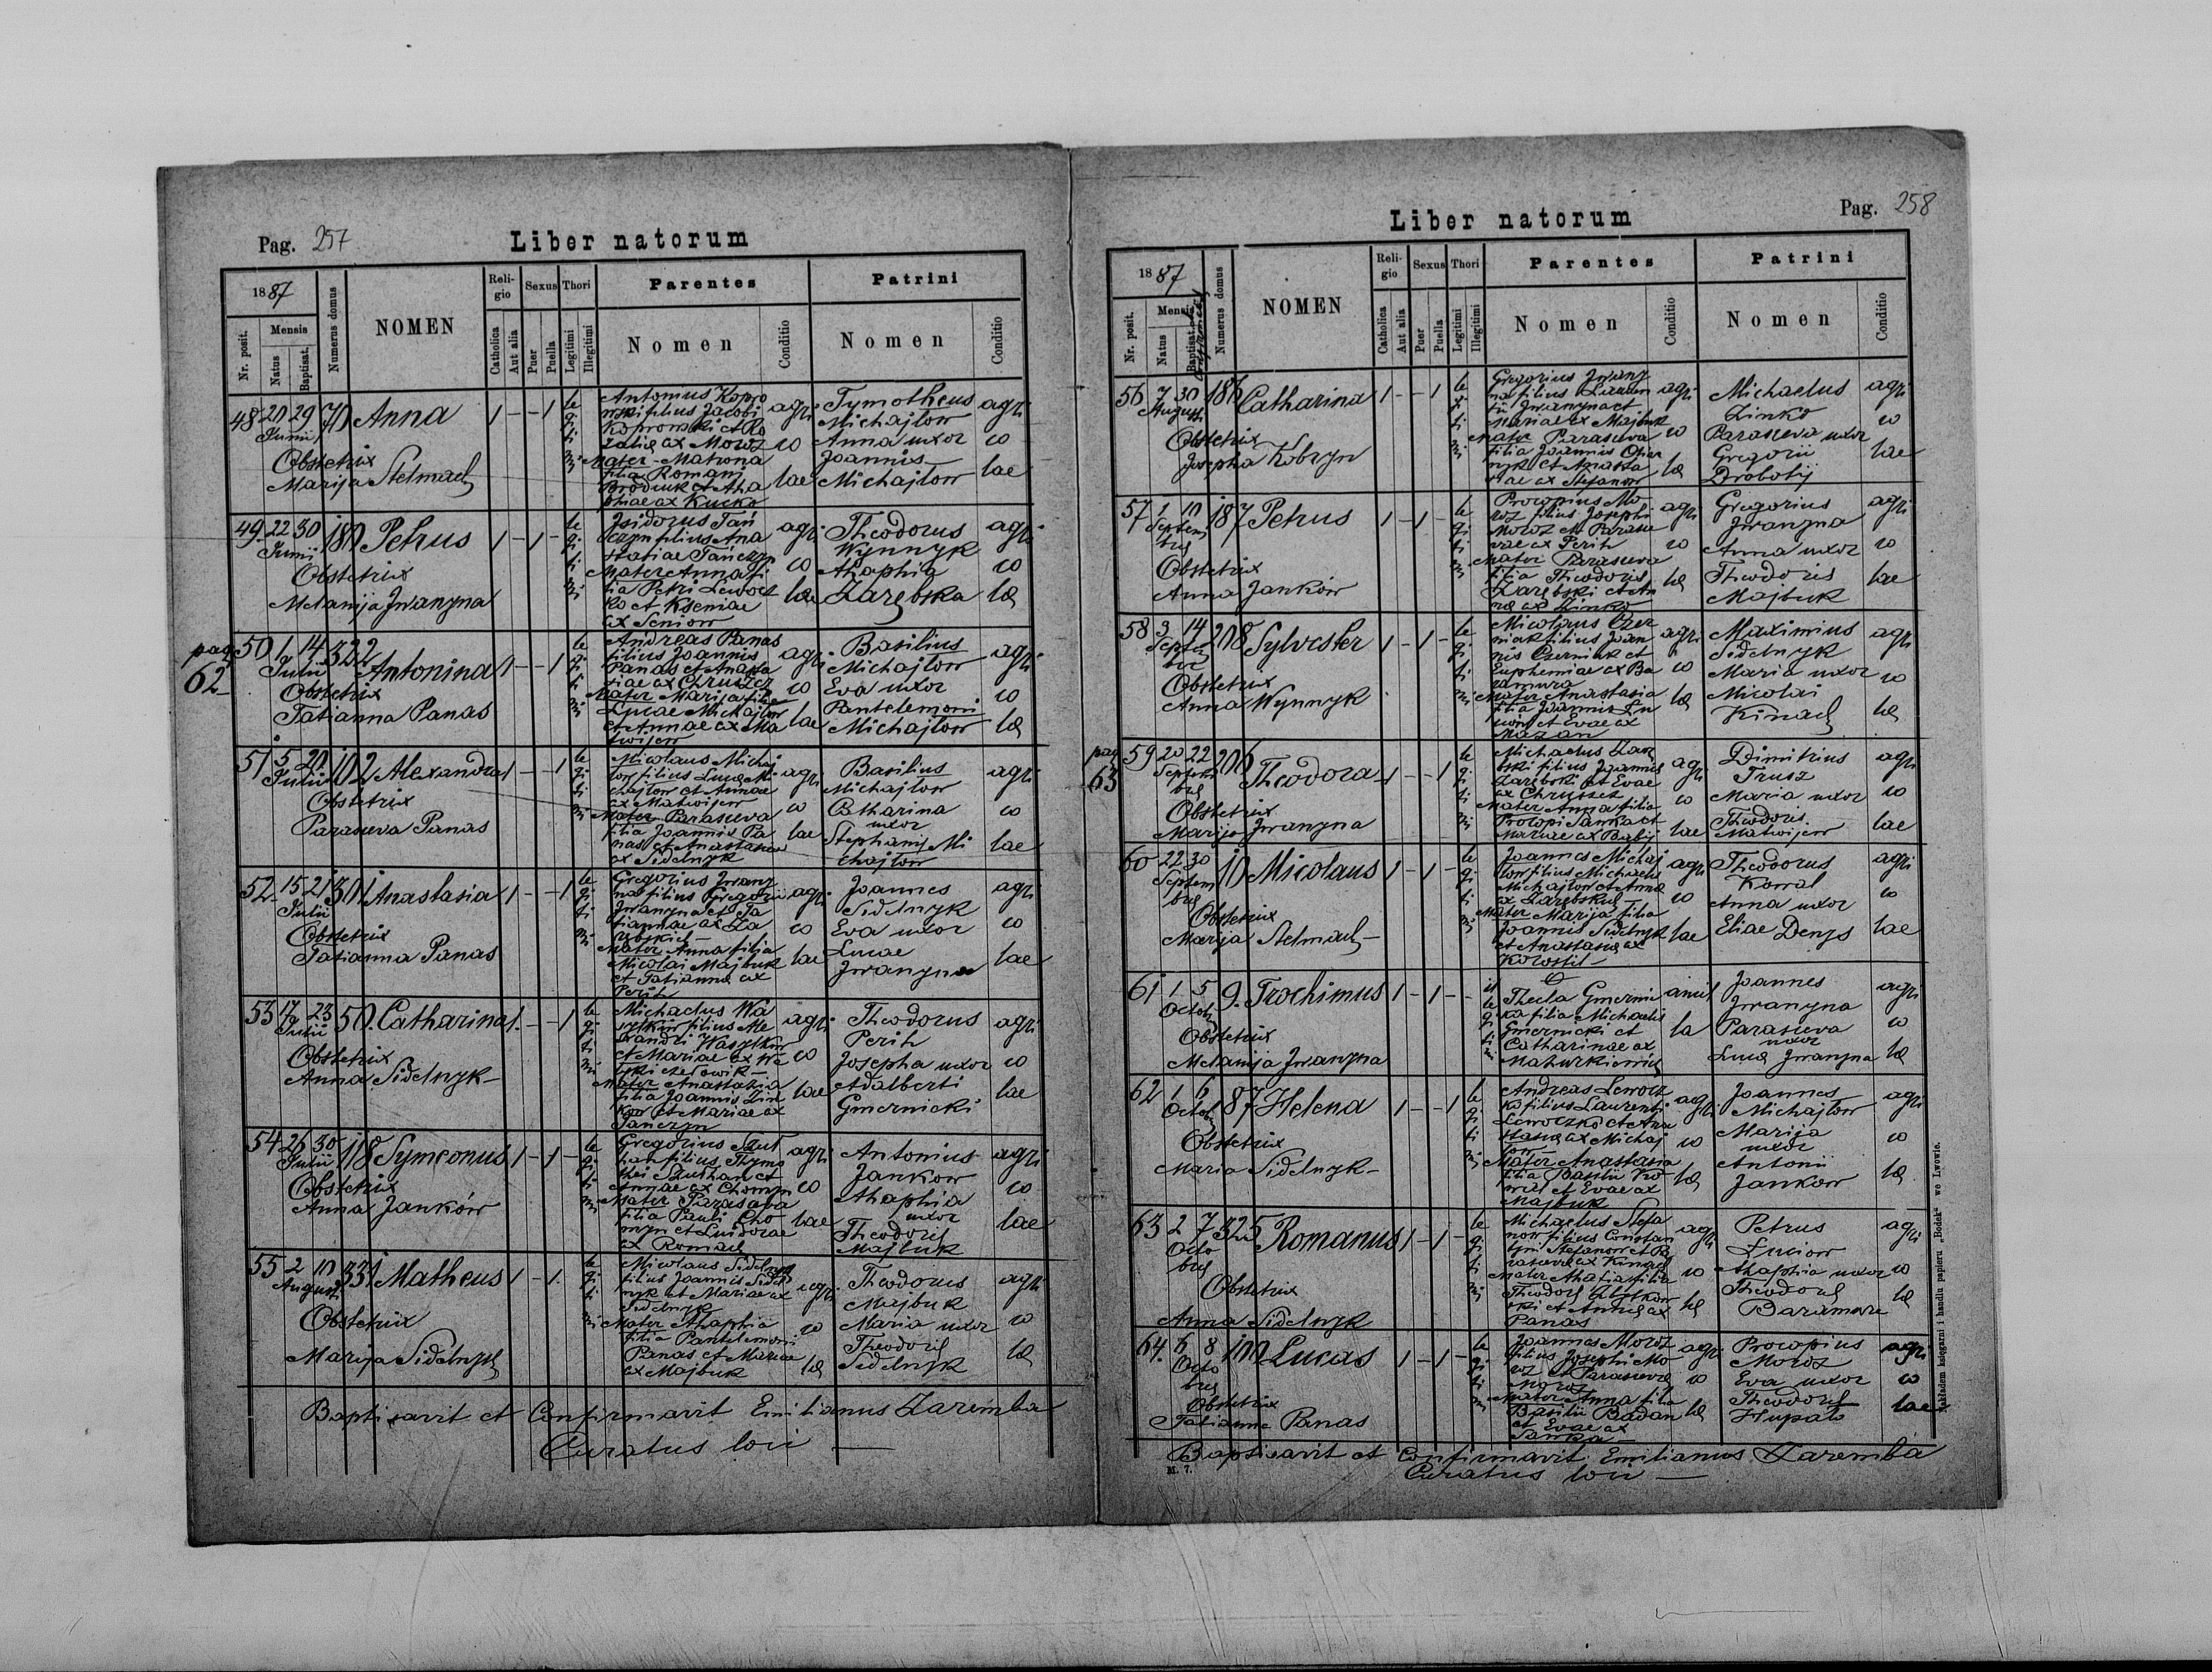 Pag. 257
Liber natorum
1887
Nr. posit.
Mensis
Natus
Baptisat.
Numerus domus
NOMEN
Religio
Catholica
Aut alia
Sexus
Puer
Puella
Thori
Legitimi
Illegitimi
Parentes
Nomen
Conditio
Patrini
Nomen
Conditio
48 20 29 70 Anna 1 - - 1
Junii
Obstetrix
Marija Stelmach
legitimi
Antonius Kopro
wski filius Jacobi
Koprowski et Ro
zaliae ex Moroz
Mater Matrona
filia Romani
Brodiuk et Aha
phiae ex Kucko
agricolae
Tymotheus
Michajlow
Anna uxor
Joannis
Michajlow
agricolae
49 22 30 180 Petrus 1 - 1 -
Junii
Obstetrix
Melanija Iwanyna
legitimi
Isidorus Tań
czyn filius Ana
statiae Tańczyn
Mater Anna fi
lia Petri Lewocz
ko et Kseniae
ex Seniow
agricolae
Theodorus
Wynnyk
Ahaphia
Zarębska
agricolae
pag 62
50 1 14 322 Antonina 1 - - 1
Julii
Obstetrix
Tatianna Panas
legitimi
Andreas Panas
filius Joannis
Panas et Anasta
siae ex Chruszcz
Mater Marija filia
Lucae Michajlow
et Annae ex Ma
twijew
agricolae
Basilius
Michajlow
Eva uxor
Pantelemoni
Michajlow
agricolae
51 5 20 102 Alexandra 1 - - 1
Julii
Obstetrix
Parasceva Panas
legitimi
Nicolaus Michaj
low filius Lucae Mi
chajlow et Annae
ex Matwijew
Mater Parasceva
filia Joannis Pa
nas et Anastasiae
ex Sidelnyk
agricolae
Basilius
Michajlow
Catharina
uxor
Stephani Mi
chajlow
agricolae
52 15 21 301 Anastasia 1 - - 1
Julii
Obstetrix
Tatianna Panas
legitimi
Gregorius Iwany
na filius Gregorii
Iwanyna et Ta
tiannae ex Za
rębskich
Mater Anna filia
Nicolai Majbuk
et Tatianna ex
Perih
agricolae
Joannes
Sidelnyk
Eva uxor
Lucae
Iwanyna
agricolae
53 17 23 50. Catharina 1. - - 1
Julii
Obstetrix
Anna Sidelnyk
legitimi
Michaelus Wa
sylkiw filius Ale
xandri Wasylkiw
et Mariae ex
Mater Anastasia
filia Joannis Zin
kow et Mariae ex
Tanczyn
agricolae
Theodorus
Perih
Josepha uxor
Adalberti
Gmernicki
agricolae
54 26 30 118 Symeonus 1 - 1 -
Julii
Obstetrix
Anna Janków
legitimi
Gregorius Szut
han filius Thymo
thei Szuthan et
Annae ex Chomyn
Mater Parasceva
filia Pauli Cho
myn et Luidorae
ex Romach
agricolae
Antonius
Jankow
Ahaphia
uxor
Theodori
Majbuk
agricolae
55 2 10 331 Matheus 1 - 1.
Augusti
Obstetrix
Marija Sidelnyk
legitimi
Nicolaus Sidelnyk
filius Joannis Sidel
nyk et Mariae ex
Sidelnyk
Mater Ahaphia
filia Pantelemoni
Panas et Mariae
ex Majbuk
agricolae
Theodorus
Majbuk
Maria uxor
Theodori
Sidelnyk
agricolae
Baptisavit et Confirmavit Emilianus Zaremba
Curatus loci
Pag. 258
Liber natorum
1887
Nr. posit.
Mensis
Natus
Baptisat. et confirmat.
Numerus domus
NOMEN
Religio
Catholica
Aut alia
Sexus
Puer
Puella
Thori
Legitimi
Illegitimi
Parentes
Nomen
Conditio
Patrini
Nomen
Conditio
56 7 30 186 Catharina 1 - - 1
Augusti
Obstetrix
Josepha Kobryn
legitimi
Gregorius Iwany
na filius Lauren
tii Iwanyna et
Mariae ex Majbuk
Mater Parasceva
filia Joannis
et Anasta
siae ex Stefanow
agricolae
Michaelus
Zinko
Parasceva uxor
Gregorii
Drobotij
agricolae
57 1 10 187 Petrus 1 - 1 -
Septembris
Obstetrix
Anna Janków
legitimi
Procopius Mo
roz filius Josephi
Moroz et Parasce
vae ex Perih
Mater Parasceva
filia Theodoris
Zarębski et An
nae ex Zinko
agricolae
Gregorius
Iwanyna
Anna uxor
Theodoris
Majbuk
agricolae
58 3 14 208 Sylvester 1 - 1 -
Septembris
Obstetrix
Anna Wynnyk
legitimi
Nicolaus Czer
niak filius Joan
nis Czerniak et
Euphemiae ex Ba
ramura
Mater Anastasia
filia Joannis Lu
ciow et Evae ex
Mazan
agricolae
Maximius
Sidelnyk
Maria uxor
Nicolai
Kinach
agricolae
pag 63
59 20 22 206 Theodora 1 - - 1
Septembris
Obstetrix
Marija Iwanyna
legitimi
Michaelus Zarę
bski filius Joannis
Zarębski et Evae
ex Chruszcz
Mater Anna filia
Procopi Sanka et
Mariae ex Babij
agricolae
Dimitrius
Trusz
Maria uxor
Theodoris
Matwijew
agricolae
60 22 30 10 Nicolaus 1 - 1 -
Septembris
Obstetrix
Marija Stelmach
legitimi
Joannes Michaj
low filius Michaelis
Michajlow et Annae
ex Zarębskich
Mater Marija filia
Joannis Sidelnyk
et Anastasiae ex
Korostil
agricolae
Theodorus
Kowal
Anna uxor
Eliae Denys
agricolae
61 1 5 9. Trochimus 1 - 1 - -
Octob
Obstetrix
Melanija Iwanyna
illegitimi
Thecla Gmernic
ka filia Michaelis
Gmernicki et
Catharinae ex
Mazurkiewicz
ancilla
Joannes
Iwanyna
Parasceva
uxor
Lucae Iwanyna
agricolae
62 1 6 87 Helena 1 - - 1
Octob
Obstetrix
Maria Sidelnyk
legitimi
Andreas Lewocz
ko filius Laurenti
Lewoczko et Ana
stasiae ex Michaj
low
Mater Anastasia
filia Basilii Ko
wal et Evae ex
Majbuk
agricolae
Joannes
Michajlow
Marija
uxor
Antonii
Jankow
agricolae
63 2 7 325 Romanus 1 - 1 -
Octobris
Obstetrix
Anna Sidelnyk
legitimi
Michaelus Stefa
now filius Constan
tyni Stefanow et Pa
rascevae ex Kinach
Mater Ahafia filia
Theodori
et Annae ex
Panas
agricolae
Petrus
Luciow
Ahaphia uxor
Theodori
Baramura
agricolae
64. 6 8 100 Lucas 1 - 1 -
Octobris
Obstetrix
Tatianna Panas
legitimi
Joannes Moroz
filius Josephi Mo
roz et Parascevae
Moroz
Mater Anna filia
Basilii Badan
et Evae ex
Sanka
agricolae
Procopius
Moroz
Eva uxor
Theodori
Hupalo
agricolae
Baptisavit et Confirmavit Emilianus Zaremba
Curatus loci
M. 7.
Nakładem księgarni i handlu papieru „Bodek" we Lwowie.